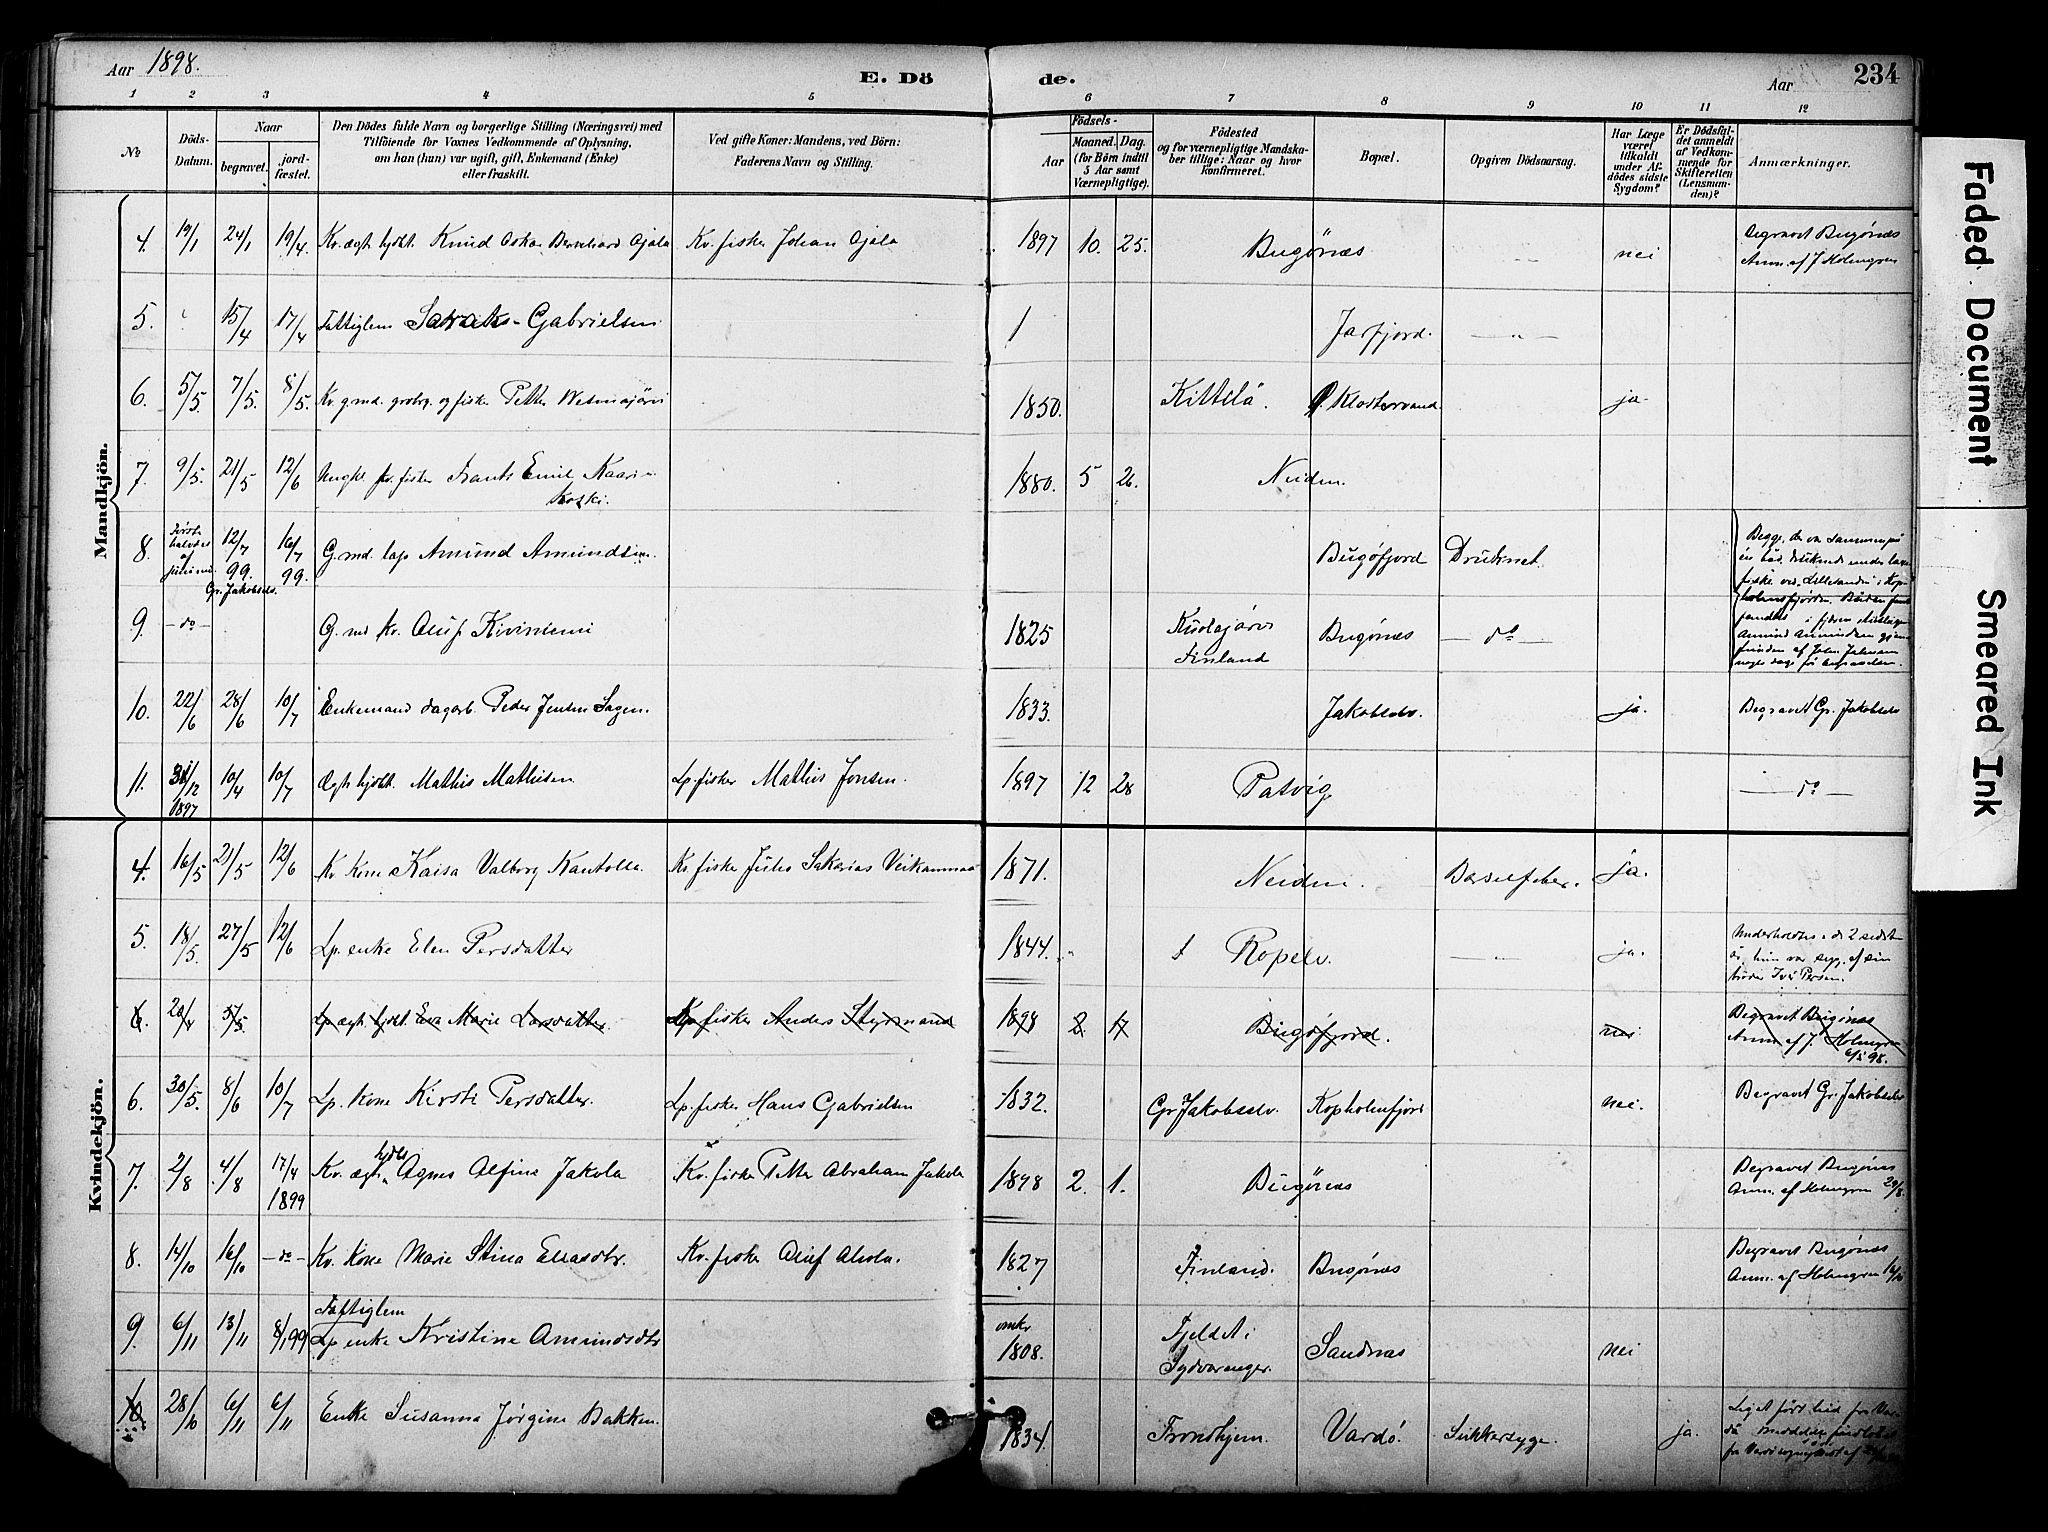 Aar 1898.
E. Dö de.
Aar 234
1 2 3 4 5 6 7 8 9 10 11 12
№
Döds-Datum.
Naar
begravet.
jord-fæstet.
Den Dödes fulde Navn og borgerlige Stilling (Næringsvei) med
Tilföiende for Voxnes Vedkommende af Oplysning,
om han (hun) var ugift, gift, Enkemand (Enke)
eller fraskilt.
Ved gifte Koner: Mandens, ved Börn:
Faderens Navn og Stilling.
Födsels-
Aar
Maaned. Dag.
(for Börn indtil
5 Aar samt
Værnepligtige).
Födested
og for værnepligtige Mandska-
ber tillige: Naar og hvor
konfirmeret.
Bopæl.
Opgiven Dödsaarsag.
Har Læge
været
tilkaldt
under Af-
dödes sidste
Sygdom?
Er Dödsfal-
det anmeldt
af Vedkom-
mende for
Skifteretten
(Lensman-
den)?
Anmærkninger.
Mandkjön.
4. 19/1 24/1 19/4 Kv. ægt. hjdbt. Knud Oskar Bernhard Ojala Kv. fisker Johan Ojala 1897 10. 25. Bugönæs nei Begravet Bugönæs
Anm. af J. Holmgren
5. 15/4 17/4 Fattiglem Gabrielsen 1 Jarfjord. — „ —
6. 5/5. 7/5. 8/5. Kv. g.md. og fisker Petter 1850. Kittelä. Klostervand. ja.
7. 9/5. 21/5 12/6 Ungkl. kv. fisker Frants Emil Kaari-
koski. 1880. 5 26. Neiden.
8. Första halvdel af juni md. 12/7 99. 16/7 99. G. md. lap Amund Amundsen. Bugöfjord Druknet.
Gr. Jakobselv.
Begge, de va sammen på
én båd, druknede under laxe-
fiske ved „Lillesanden" i Kop-
holmsfjorden.
9. — do — G. md kv. Oluf Kiviniemi 1825 Kuolajärvi
Finland Bugönæs — do —
10. 22/6 28/6 10/7 Enkemand dagarb. Peder Jensen Sagen. 1833. Jakobselv. ja. Begravet Gr. Jakobselv
11. 31/12 1897 10/4 10/7 Ægt. hjdbt. Mathis Mathisen Lp. fisker Mathis Jonsen. 1897 12 28 Patvig — do —
Kvindekjön.
4. 16/5 21/5 12/6 Kv. Kone Kaisa Valborg Kantolla. Kv. fisker Julus Sakarias Veikanmaa 1871. Neiden. Barselfeber. ja.
5. 18/5. 27/5 12/6 Lp. enke Elen Persdatter 1844. Ropelv. — „ — ja. Underholdtes i de 2 sidste
år, hun var syg, af sin
broder Iver Persen.
6. 20/4 5/5 Lp. ægt. hjdbt. Eva Marie Larsdatter. Lp. fisker Anders Styrmand 1898 2. 17 Bugöfjord. nei Begravet Bugönæs
Anm. af J. Holmgren
6/5 98.
6. 30/5. 8/6 10/7 Lp. kone Kirsti Persdatter. Lp. fisker Hans Gabrielsen 1832. Gr. Jakobselv. Kopholmfjord nei. Begravet Gr. Jakobselv
7. 2/8 4/8 17/4 1899 Kv. ægt. hjdbt. Agnes Alfina Jakola Kv. fisker Petter Abraham Jakola 1898 2. 1. Bugönæs Begravet Bugönæs
Anm. af Holmgren 29/8.
8. 14/10 16/10 — do — Kv. Kone Marie Stina Eliasdtr. Kv. fisker Oluf Ahola. 1827 Finland. Bugönæs Begravet Bugönæs
Anm. af Holmgren 16/10
9. 6/11 13/11 8/1 99 Fattiglem
Lp enke Kristine Amundsdtr omkr
1808. Fjeldet i
Sydvaranger. Sandnæs nei
10 28/10 6/11 6/11 Enke Susanna Jörgine Bakken. 1834. Trondhjem. Vardö. Sukkersyge. ja. Liget fört hid fra Var-
dö
Faded Document
Smeared Ink